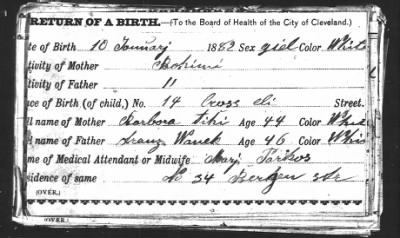 RETURN OF A BIRTH.—(To the Board of Health of the City of Cleveland.)
te of Birth 10 Januarj 1882 Sex giel Color White
tivity of Mother Bohimi
tivity of Father 11
ace of Birth (of child.) No. 14 Cross Street.
l name of Mother Barbora Age 44 Color Whit
l name of Father Franz Wanek Age 46 Color Whi
me of Medical Attendant or Midwife Marj
sidence of same No 34 Bergen
(OVER.)
(OVER.)